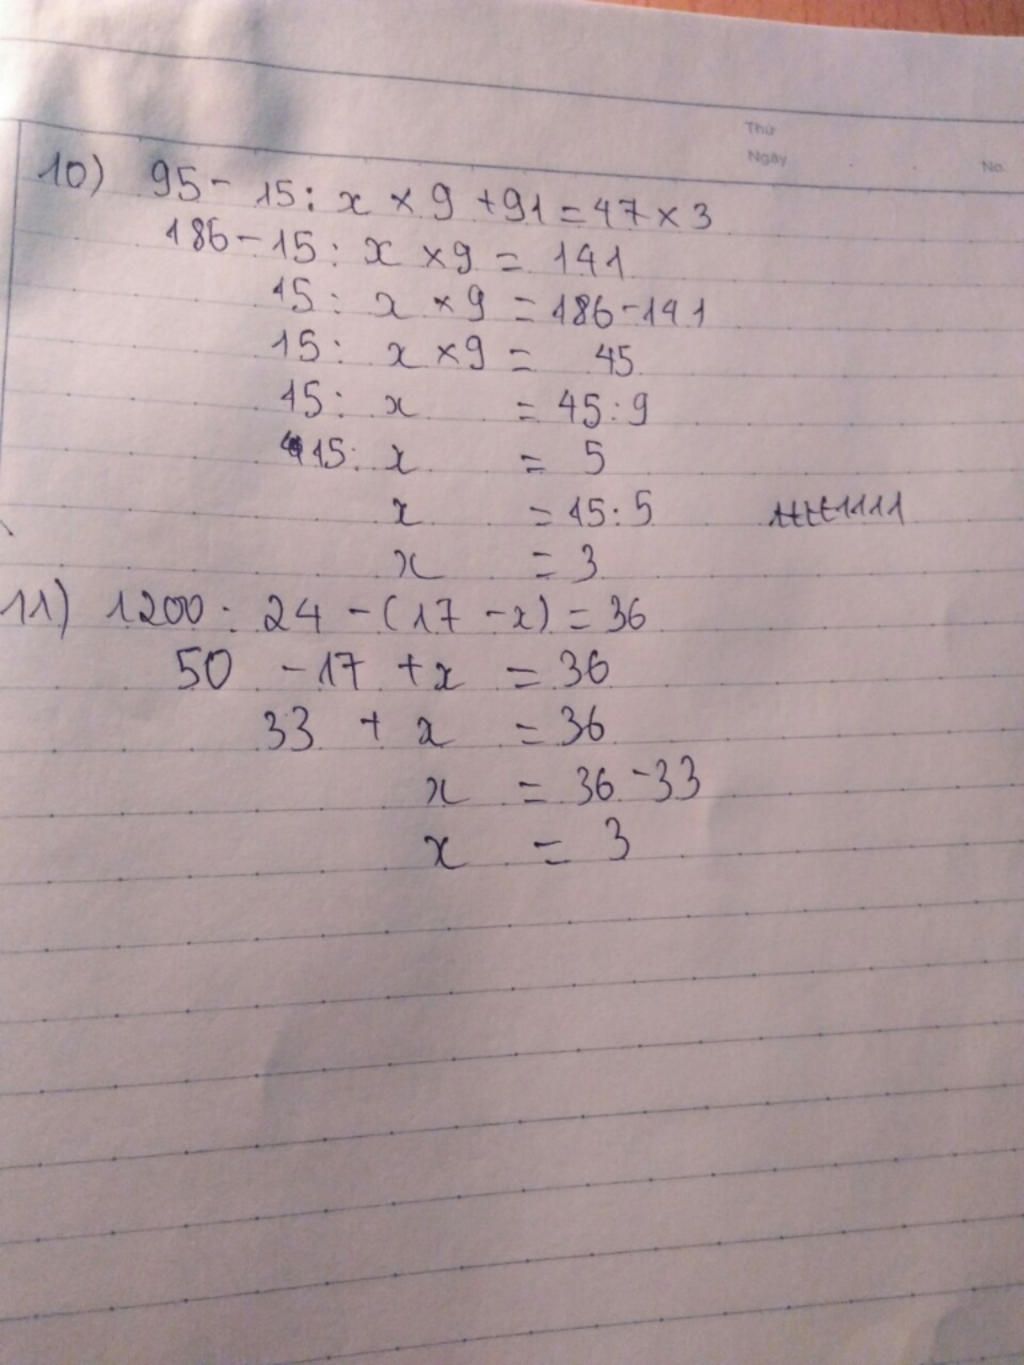 Thứ
Ngày
No.
10) 95 - 15 : x × 9 + 91 = 47 × 3
186 - 15 : x × 9 = 141
15 : x × 9 = 186 - 141
15 : x × 9 = 45
15 : x = 45 : 9
15 : x = 5
x = 15 : 5
x = 3
11) 1200 : 24 - (17 - x) = 36
50 - 17 + x = 36
33 + x = 36
x = 36 - 33
x = 3